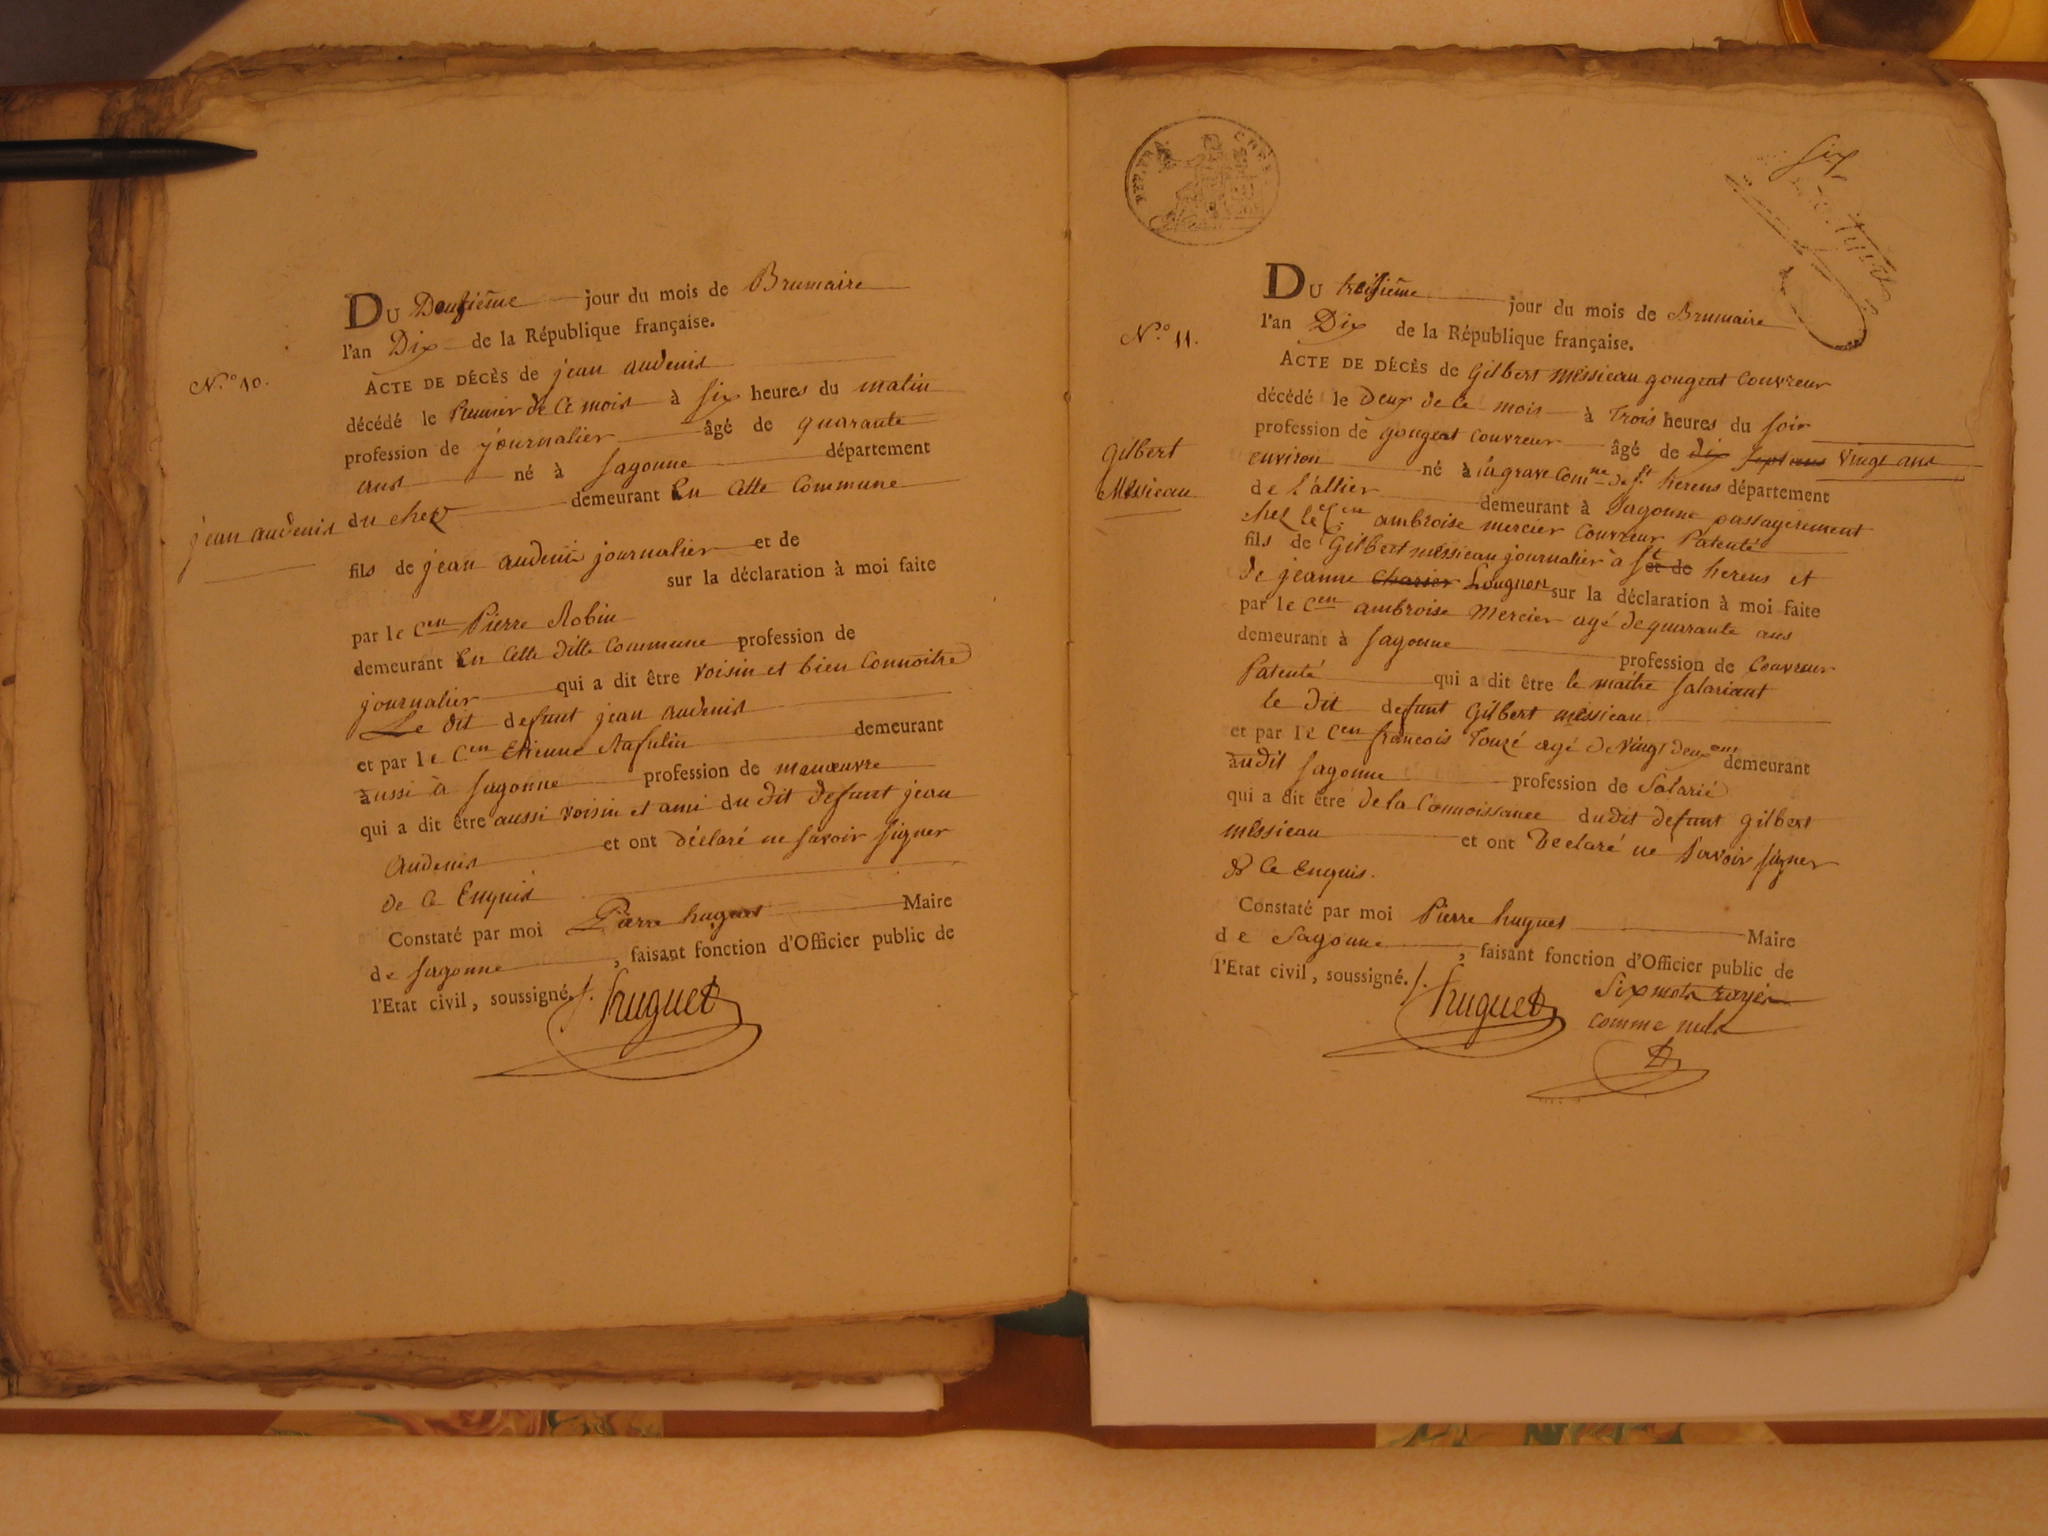 N.° 10.
jean audenis
DU Deuxième jour du mois de Brumaire
l'an Dix de la République française.
ACTE DE DÉCÈS de jean audenis
décédé le Premier de Ce mois à six heures du matin
profession de journalier âgé de quarante
ans né à sagonne département
du cher demeurant En Cette Commune
fils de jean audenis journalier et de
sur la déclaration à moi faite
par le Cen Pierre Robin
demeurant En Cette ditte Commune profession de
journalier qui a dit être voisin et bien Connoitre
Le dit defunt jean audenis
et par le Cen Etienne Rafulin demeurant
aussi à sagonne profession de manœuvre
qui a dit être aussi voisin et ami du dit defunt jean
Audenis et ont déclaré ne savoir signer
de Ce Enquis
Constaté par moi Pierre hugues Maire
de sagonne , faisant fonction d'Officier public de
l'Etat civil, soussigné. huguet
N.° 11.
Gilbert
Messieau
DU troisième jour du mois de Brumaire
l'an Dix de la République française.
ACTE DE DÉCÈS de Gilbert messieau gougeat Couvreur
décédé le Deux de Ce mois à Trois heures du soir
profession de gougeat Couvreur âgé de dix sept ans Vingt ans
environ né à lagrave Comne de st herens département
de L'allier demeurant à Sagonne passagerement
chez le Cen ambroise mercier Couvreur Patenté
fils de Gilbert messieau journalier à st et de herens et
de jeanne Lougnon sur la déclaration à moi faite
par le Cen ambroise Mercier agé de quarante ans
demeurant à Sagonne profession de Couvreur
Patenté qui a dit être le maitre salariant
le dit defunt Gilbert messieau
et par le Cen francois Touzé agé de Vingt deux ans demeurant
audit sagonne profession de Salarié
qui a dit être de la Connoissance du dit defunt gilbert
messieau et ont Declaré ne Savoir signer
de Ce Enquis.
Constaté par moi Pierre hugues Maire
de Sagonne , faisant fonction d'Officier public de
l'Etat civil, soussigné. huguet
Six mots rayés
comme nuls